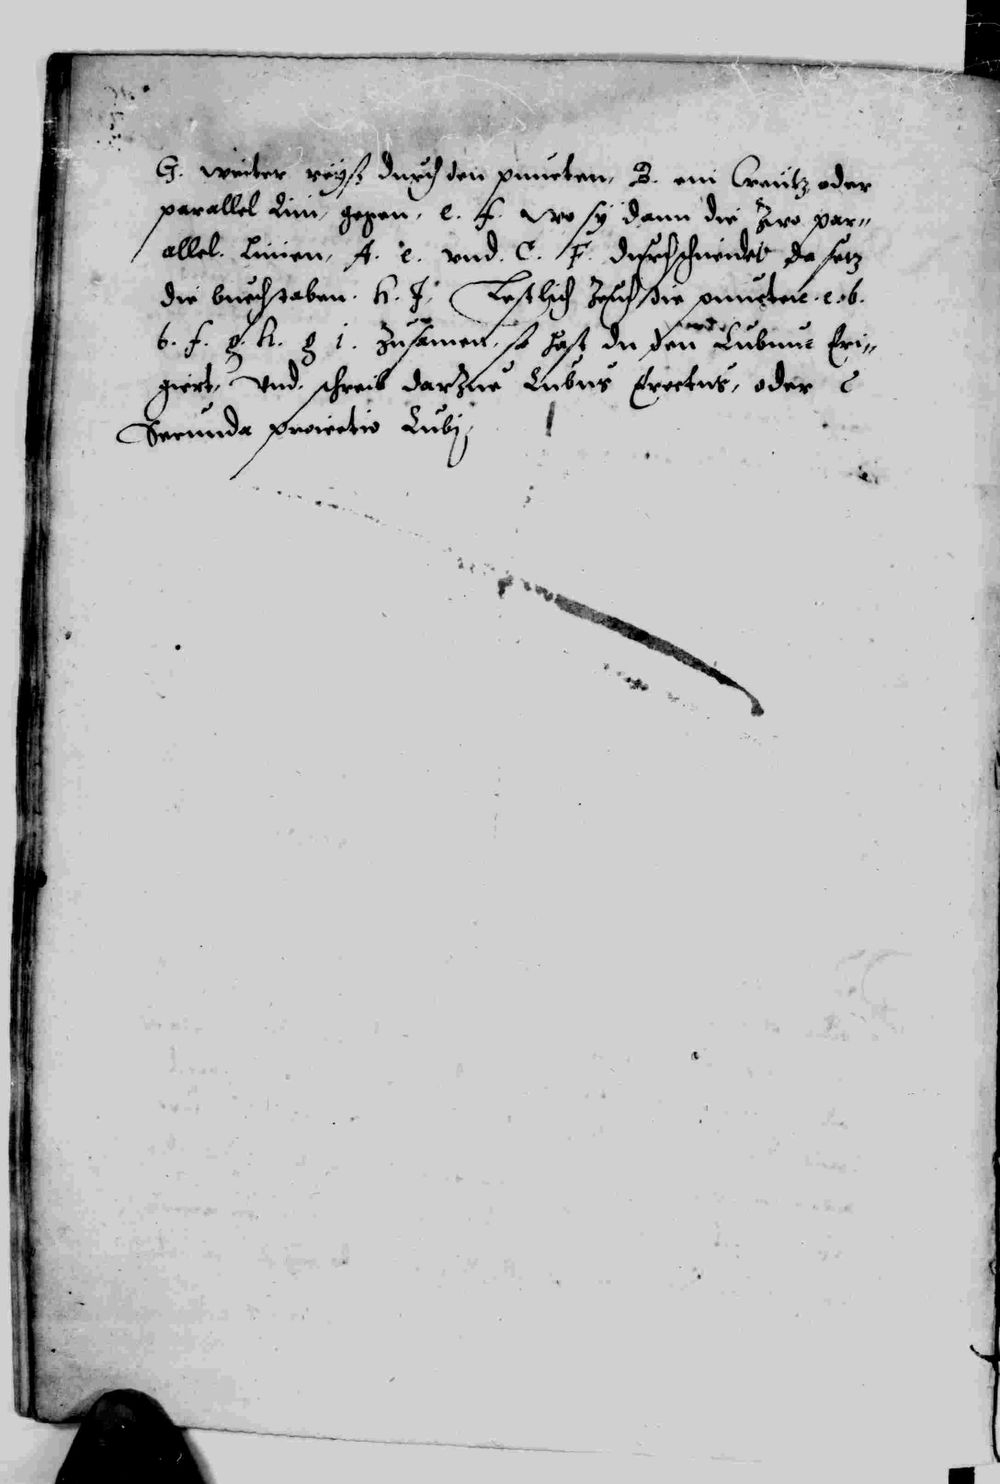 G. weiter reyß durch den puncten, B. ein Creütz oder
parallel Lini, gegen, e. f. wo sy dann die zwo par„
allel. Linien, A. e. vnd. C. F. durchschneidet da setz
die buechstaben. h. J. Letstlich zeüch die puncten. e. b.
b. f. g. h. g i. zusamen, so hast du den Cubum Eri„
giert, Vnd. schreib darzue Cubus Erectus, oder
Secunda proiectio Cubj,